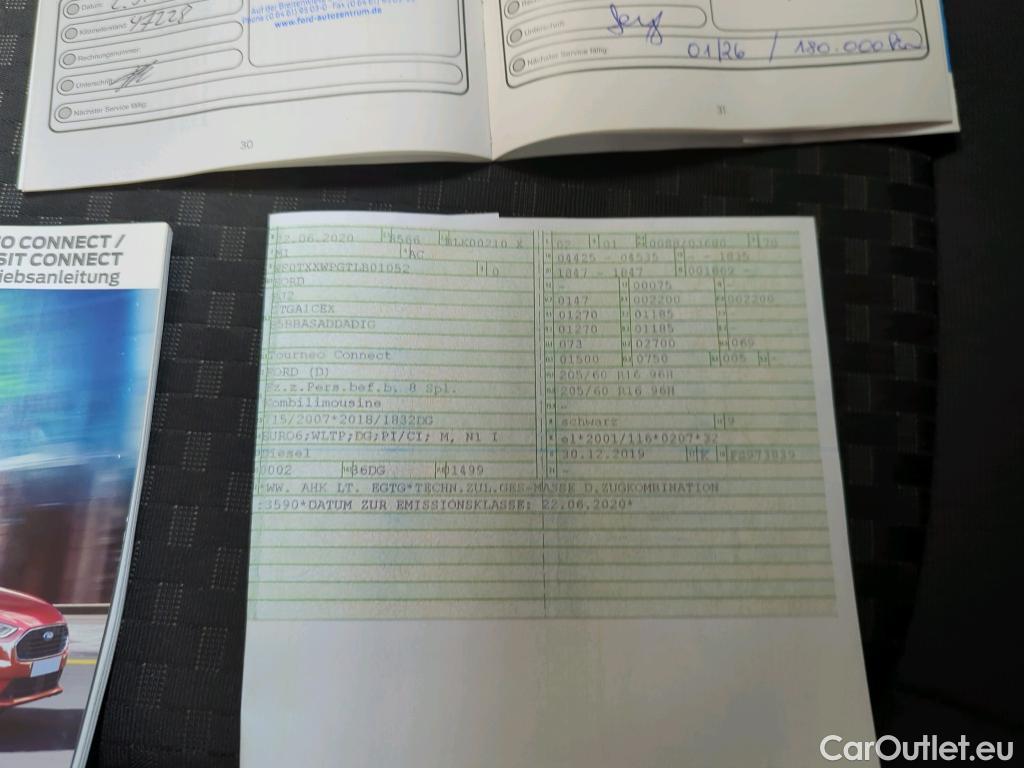 Datum:
Kilometerstand: 47228
Rechnungsnummer:
Unterschrift:
Nächster Service fällig:
30
Auf der Breitenwiese
www.ford-autozentrum.de
Unterschrift:
Nächster Service fällig: 01/26 / 180.000 km
31
CONNECT /
SIT CONNECT
iebsanleitung
22.06.2020 8566
M1 AC
WF0TXXWPGTLB01052 0
FORD
PJ2
Tourneo Connect
FORD (D)
Fz.z.Pers.bef.b. 8 Spl.
Kombilimousine
715/2007*2018/1832DG
EURO6;WLTP;DG;PI/CI; M, N1 I
Diesel
0002 36DG 01499
*WW. AHK LT. EGTG*TECHN.ZUL.GES-MASSE D.ZUGKOMBINATION
:3590*DATUM ZUR EMISSIONSKLASSE: 22.06.2020*
02 01 0088/03600 70
04425 - 04535 - - 1835
1847 - - 1847
- 00075 -
0147 002200 002200
01270 01185 -
01270 01185 -
073 02700 069
01500 0750 005 -
205/60 R16 96H
205/60 R16 96H
-
schwarz 9
e1*2001/116*0207*32
30.12.2019 K
-
CarOutlet.eu